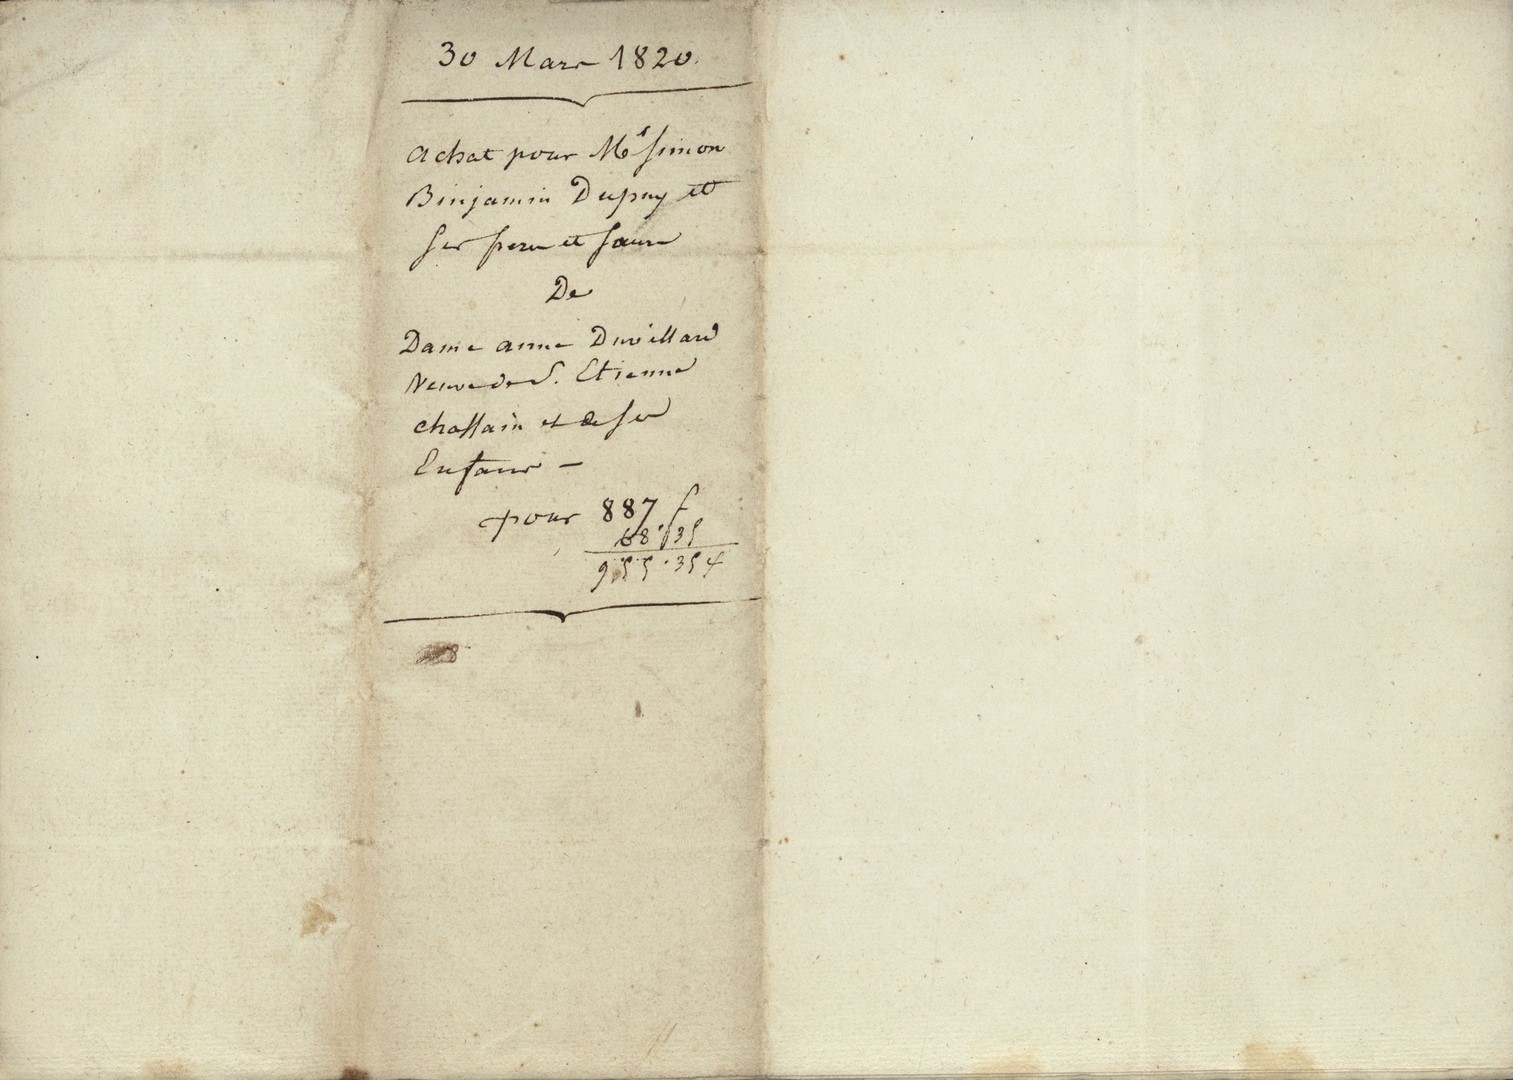 30 Mars 1820.
achat pour Mr Simon
Binjamin Dupuy et
ses frere et sœur
De
Dame anne Duvillard
Veuve de S. Etienne
chassain et de ses
Enfans —
pour 887 f
68 . 35
955 . 35 f
8